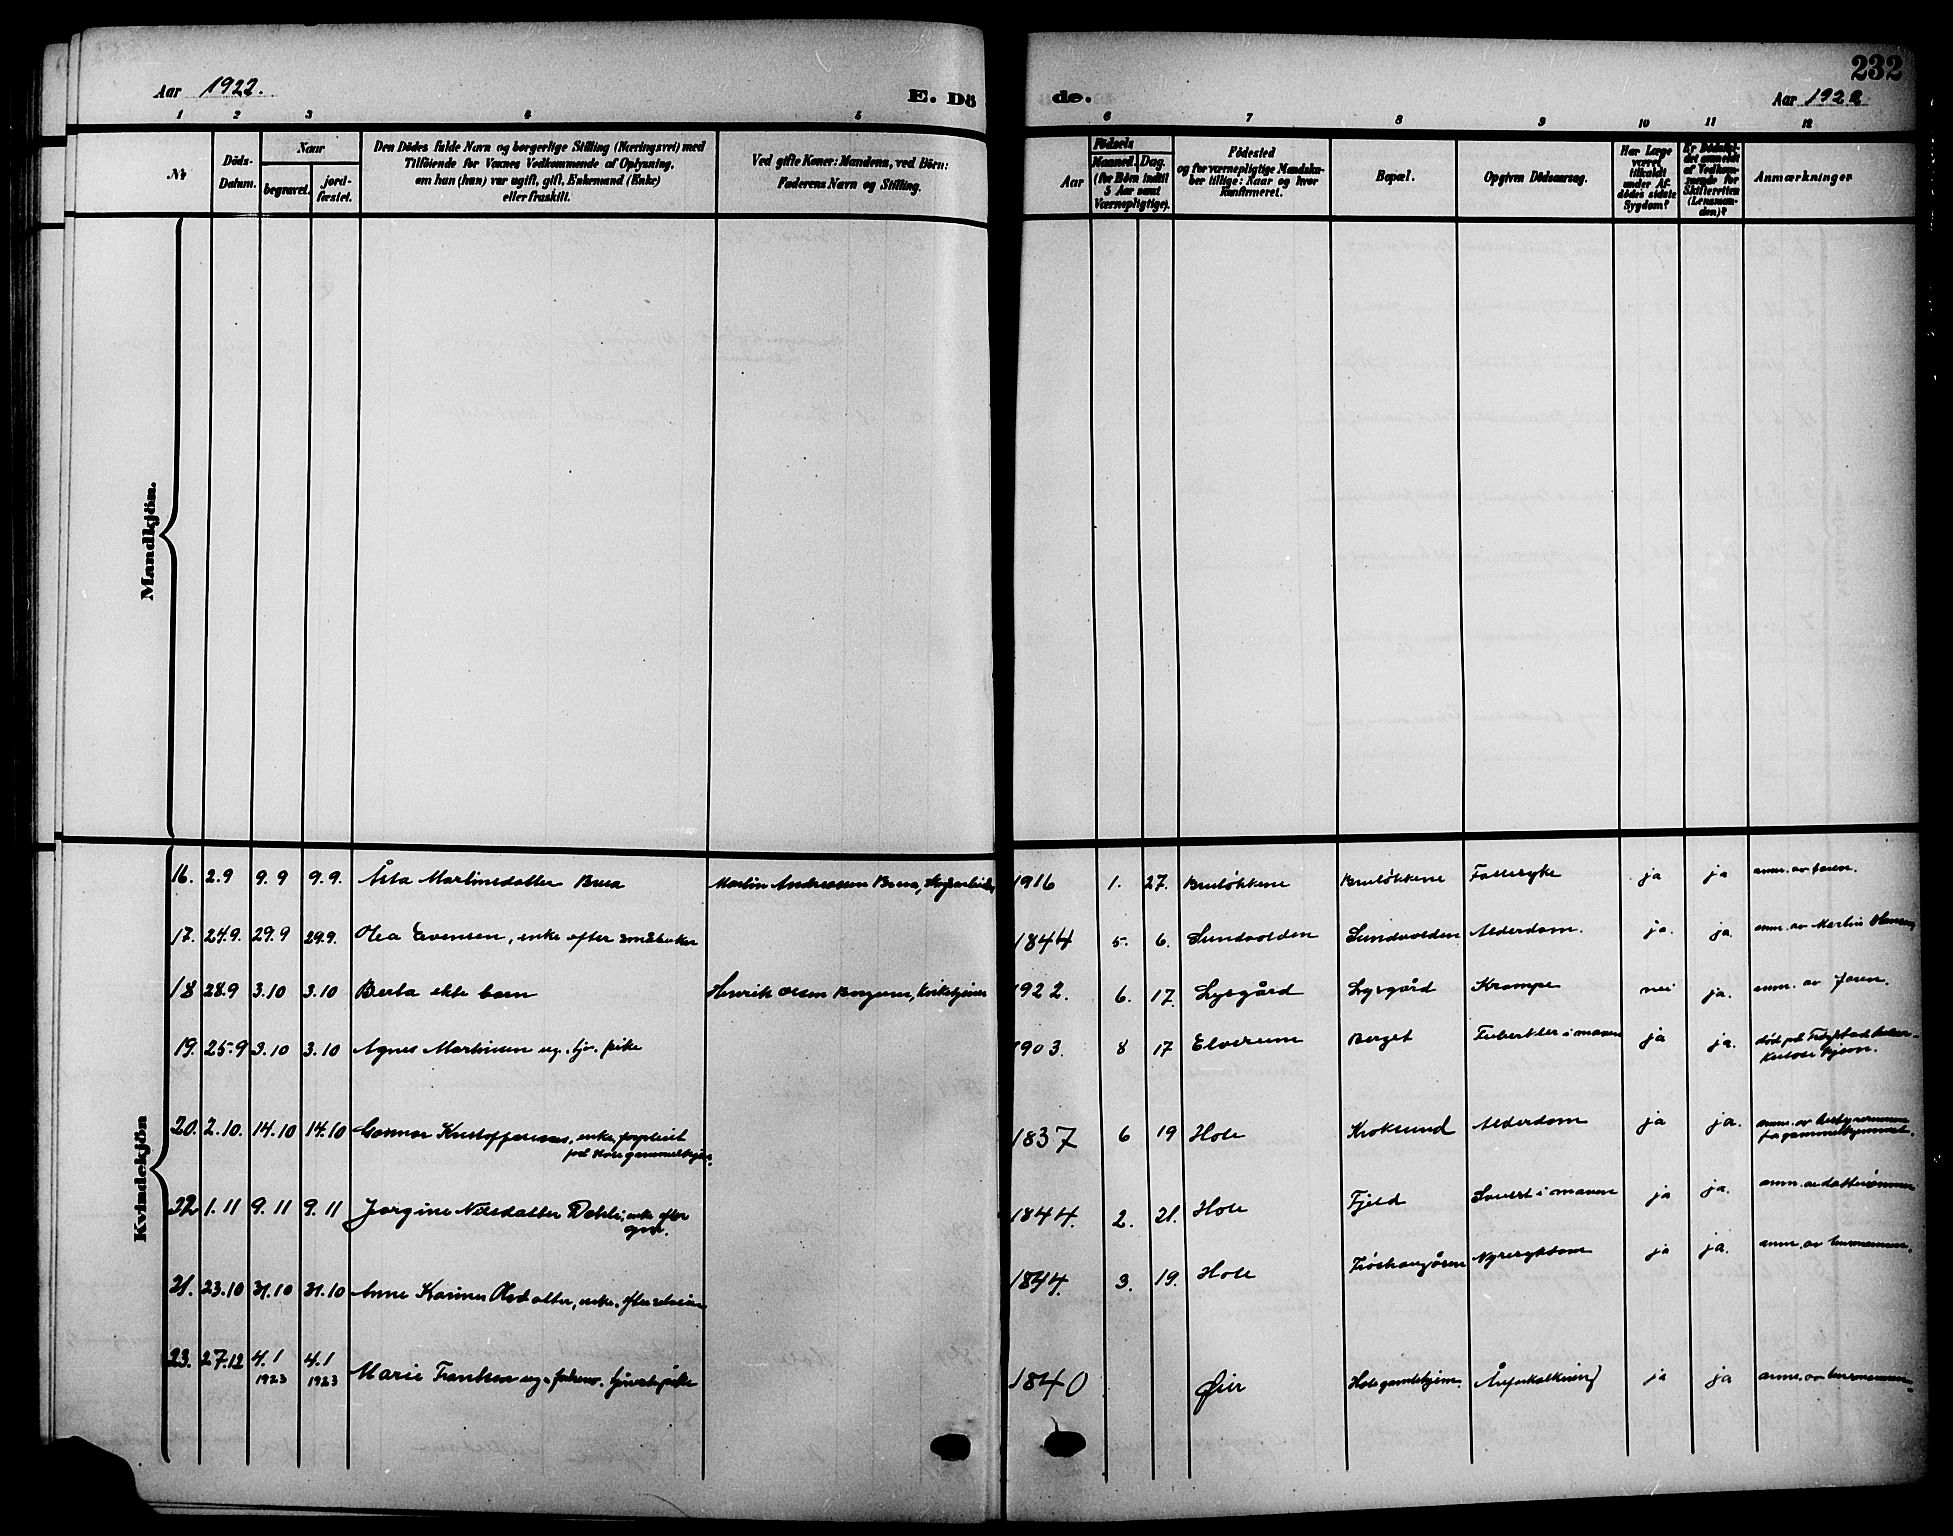 232
Aar 1922.
E. Dö
de.
Aar 1922
1 2 3 4 5
6 7 8 9 10 11 12
No
Döds-
Datum.
Naar
begravet.
jord-
fæstet.
Den Dödes fulde Navn og borgerlige Stilling (Næringsvei) med
Tilföiende for Voxnes Vedkommende af Oplysning,
om han (hun) var ugift, gift, Enkemand (Enke)
eller fraskilt.
Ved gifte Koner: Mandens, ved Börn:
Faderens Navn og Stilling.
Aar
Födsels
Maaned. Dag.
(for Börn indtil
5 Aar samt
Værnepligtige).
Födested
og for værnepligtige Mandska-
ber tillige: Naar og hvor
konfirmeret.
Bopæl.
Opgiven Dödsaarsag.
Har Læge
været
tilkaldt
under Af-
dödes sidste
Sygdom?
Er Dödsfal-
det anmeldt
af Vedkom-
mende for
Skifteretten
(Lensman-
den)?
Anmærkninger
Mandkjön.
Kvindekjön
16. 2.9 9.9 9.9. Åsta Martinsdatter Brua Martin Andreassen Brua, 1916 1. 27. Bruløkkene Bruløkkene Fallesyke ja ja anm. av faren.
17. 24.9. 29.9 29.9. Olea Evensen, enke efter småbruker 1844 5. 6. Sundvolden Sundvolden Alderdom. ja. ja. anm. av Martin Hansen
18 28.9 3.10 3.10 Berta ekte barn Henrik Olsen kirketjener 1922. 6. 17. Lysgård Lysgård Krampe nei ja. anm. av faren.
19. 25.9 3.10 3.10 Agnes Martinsen ug. tj. pike 1903. 8 17 Elverum Berget Tuberkler i maven ja ja. død på
hjem.
20. 2.10. 14.10 14.10 Gunnor Kristoffersen, enke, forpleiet
på Hole gammelhjem. 1837 6 19 Hole Kroksund Alderdom ja ja. anm. av bestyrerinnen
fra gammelhjemmet.
22 1.11 9.11 9.11 Jørgine Nilsdatter Dahli, enke efter
gdr. 1844. 2. 21. Hole Fjeld Svulst i maven ja ja. anm. av
21. 23.10 31.10 31.10 Anne Karine Olsdatter, enke. efter selveier 1844. 3. 19. Hole Nyresykdom ja ja. anm. av
23. 27.12 4.1
1923 4.1
1923 Marie Frantsen ug. tjenestepike 1840 Øier Hole gamlehjem. Åreforkalkning ja ja anm. av